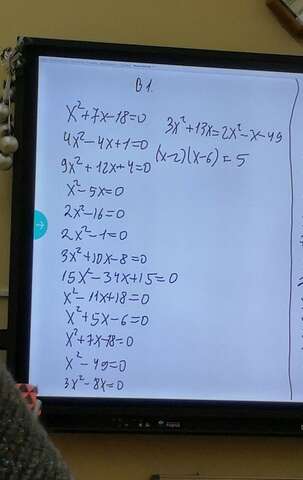 В1.
x²+7x-18=0
4x²-4x+1=0
9x²+12x+4=0
x²-5x=0
2x²-16=0
2x²-1=0
3x²+10x-8=0
15x²-34x+15=0
x²-11x+18=0
x²+5x-6=0
x²+7x-18=0
x²-49=0
3x²-8x=0
3x²+13x=2x²-x-49
(x-2)(x-6)=5